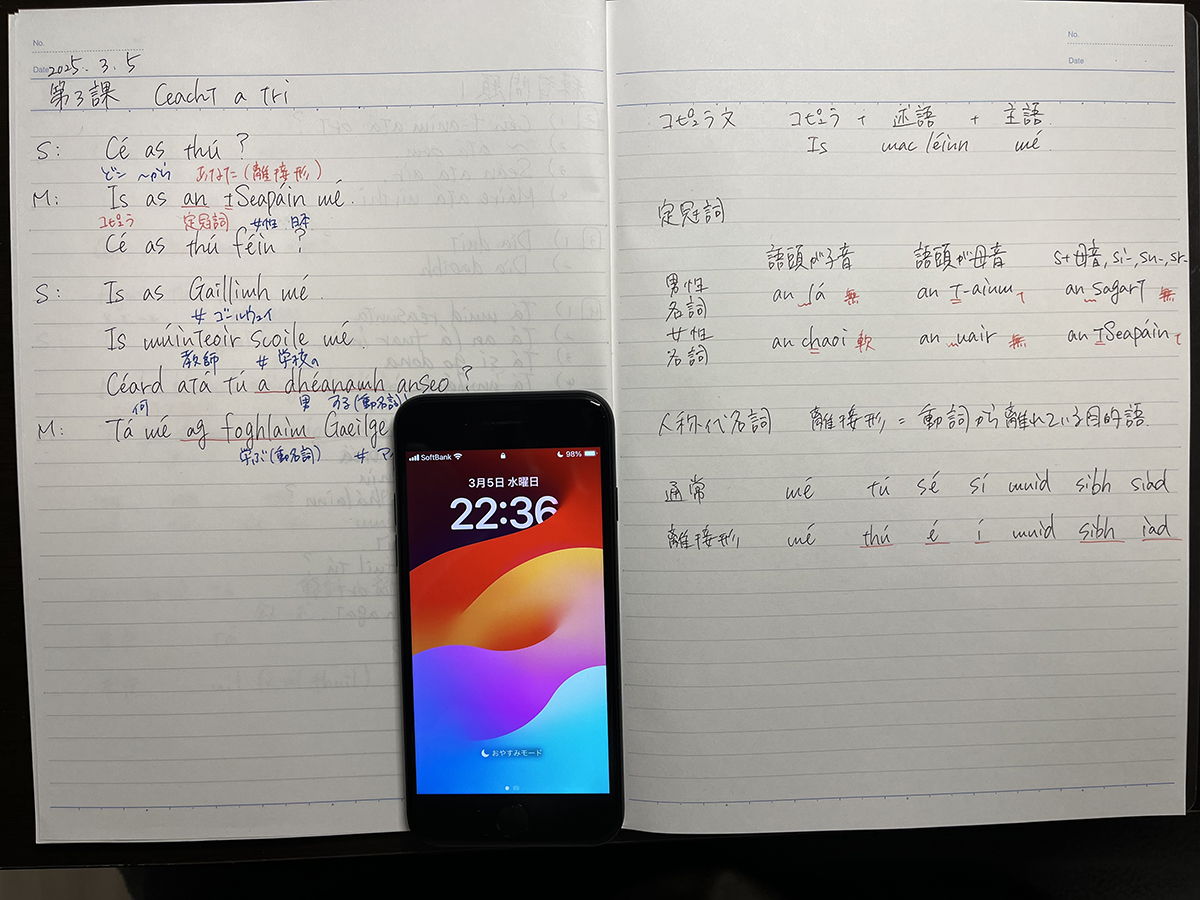 No.
Date 2025. 3. 5
第3課 Ceacht a trí
S: Cé as thú?
どこ ～から あなた(離接形)
M: Is as an tSeapáin mé.
コピュラ 定冠詞 女性 日本
Cé as thú féin?
S: Is as Gaillimh mé.
女 ゴールウェイ
Is múinteoir scoile mé.
教師 女 学校の
Céard atá tú a dhéanamh anseo?
何 男 する(動名詞)
M: Tá mé ag foghlaim Gaeilge
学ぶ(動名詞) 女
SoftBank 98%
3月5日 水曜日
22:36
おやすみモード
No.
Date
コピュラ文 コピュラ + 述語 + 主語
Is mac léinn mé.
定冠詞
語頭が子音 語頭が母音 s+母音, sl-, sn-, sr-
男性名詞 an lá 無 an t-ainm t an sagart 無
女性名詞 an chaoi 軟 an uair 無 an tSeapáin t
人称代名詞 離接形 = 動詞から離れている目的語.
通常 mé tú sé sí muid sibh siad
離接形 mé thú é í muid sibh iad